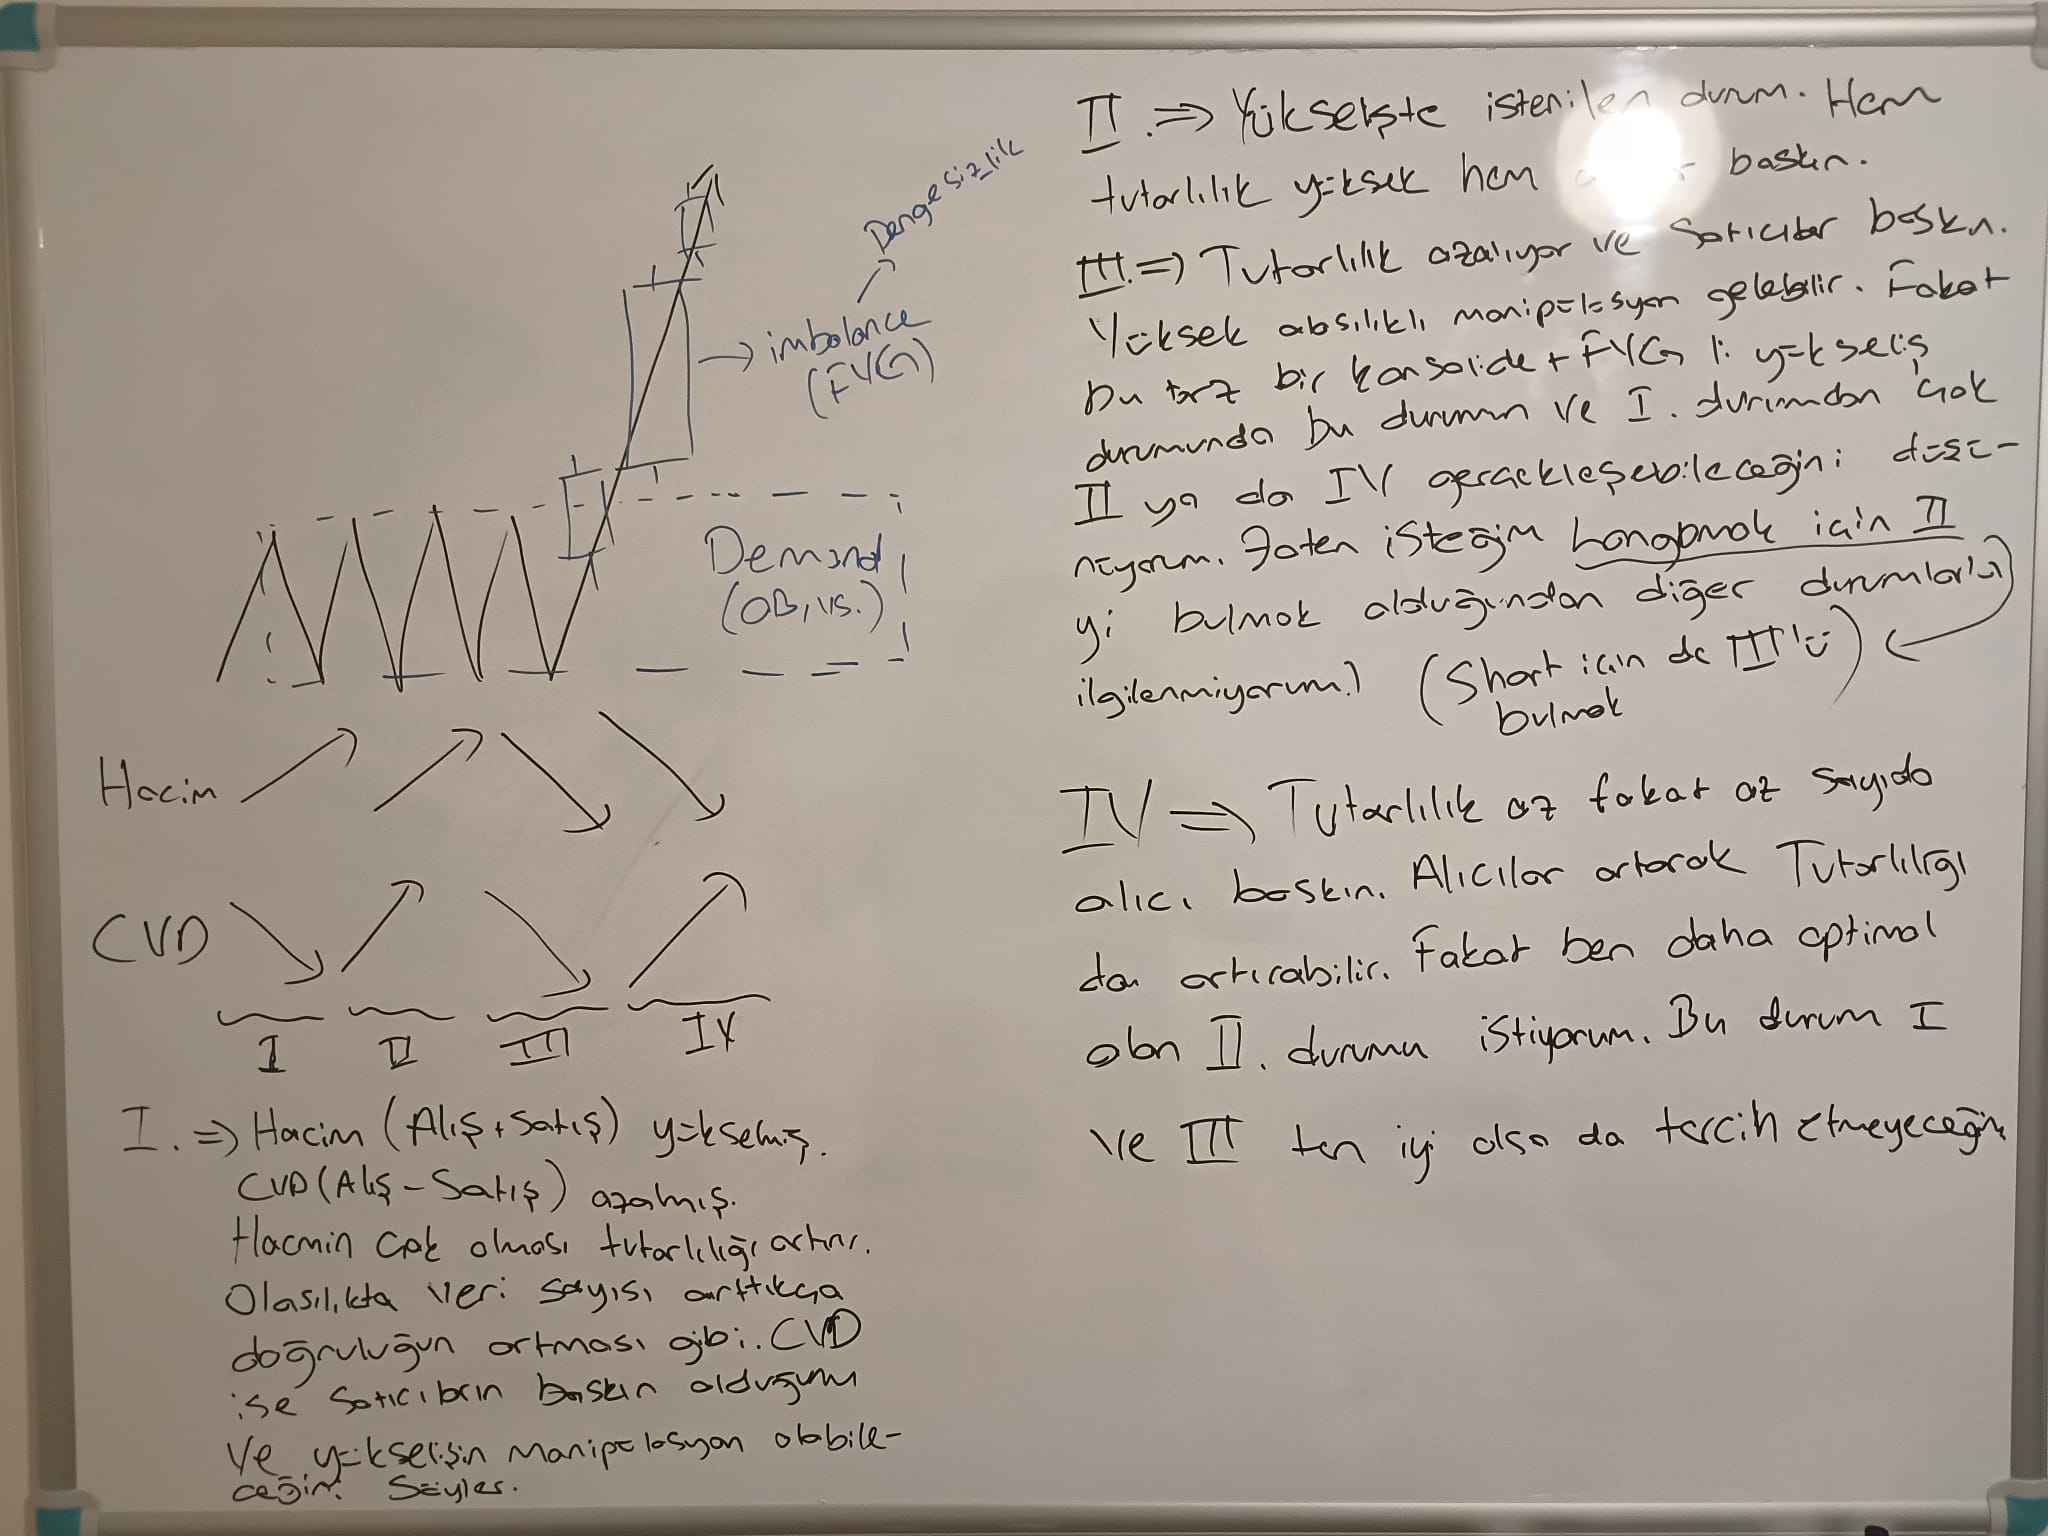 Dengesizlik
imbalance
(FVG)
Demand
(OB, vs.)
Hacim
CVD
I II III IV
I. => Hacim (Alış + Satış) yükselmiş.
CVD (Alış - Satış) azalmış.
Hacmin çok olması tutarlılığı artırır.
Olasılıkta veri sayısı arttıkça
doğruluğun artması gibi. CVD
ise satıcıların baskın olduğunu
ve yükselişin manipülasyon olabile-
ceğini söyler.
II. => Yükselişte istenilen durum. Hem
tutarlılık yüksek hem baskın.
III. => Tutarlılık azalıyor ve Satıcılar baskın.
Yüksek manipülasyon gelebilir. Fakat
bu tarz bir konsolide + FVG li yükseliş
durumunda bu durumun ve I. durumdan çok
II ya da IV gerçekleşebileceğini düşü-
nüyorum. Zaten isteğim Long için II
yi bulmak olduğundan diğer durumlarla
ilgilenmiyorum.) (Short için de III'ü
bulmak)
IV => Tutarlılık az fakat az sayıda
alıcı baskın. Alıcılar artarak Tutarlılığı
da artırabilir. Fakat ben daha optimal
olan II. durumu istiyorum. Bu durum I
ve III ten iyi olsa da tercih etmeyeceğim